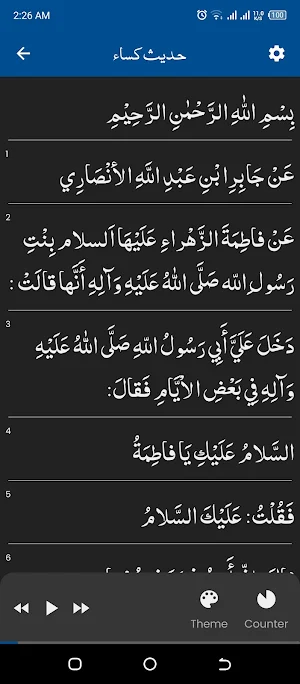 2:26 AM
11.0
K/S
100
حدیث کساء
بِسْمِ اللهِ الرَّحْمٰنِ الرَّحِيْمِ
1
عَنْ جَابِرِ ابْنِ عَبْدِ اللهِ الأَنْصَارِي
2
عَنْ فاطِمَةَ الزَّهْراءِ عَلَيْهَا اَلسلام بِنْتِ
رَسُولِ اللّه صَلَّى اللهُ عَلَيْهِ وَآلِهِ أَنَّها قالَتْ :
3
دَخَلَ عَلَيَّ أَبِي رَسُولُ اللّهِ صَلَّى اللهُ عَلَيْهِ
وَآلِهِ فِي بَعْضِ الاَيَّامِ فَقالَ:
4
السَّلامُ عَلَيْكِ يَا فاطِمَةُ
5
فَقُلْتُ: عَلَيْكَ السَّلامُ
6
Theme
Counter